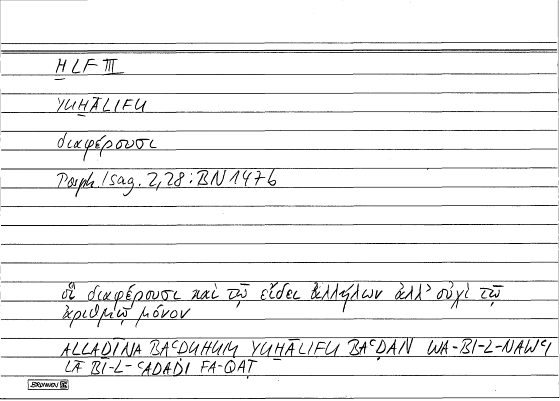 ḪLF III
YUḪĀLIFU
διαφέρουσι
Porph. Isag. 2,28: BN 147b
οἳ διαφέρουσι καὶ τῷ εἴδει ἀλλήλων ἀλλ' οὐχὶ τῷ
ἀριθμῷ μόνον
ALLAḎĪNA BAʿḌUHUM YUḪĀLIFU BAʿḌAN WA-BI-L-NAWʿI
LĀ BI-L-ʿADADI FA-QAṬ
BRUNNEN